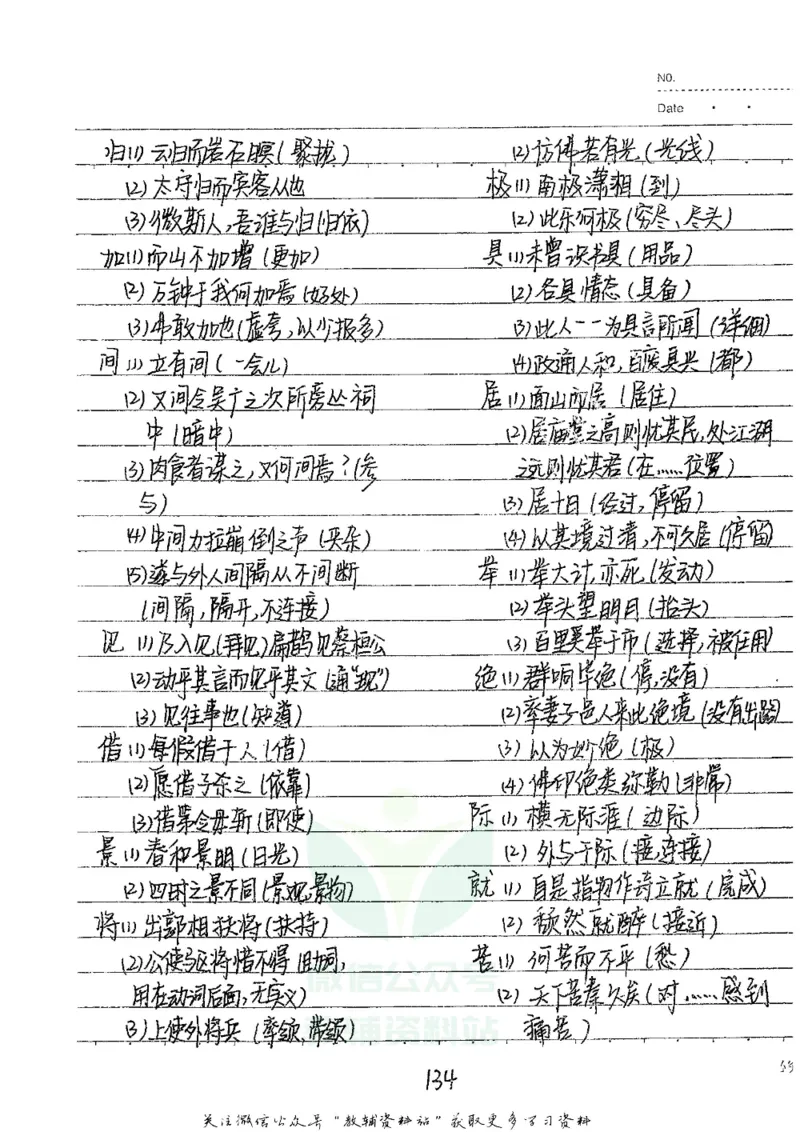 NO.
Date
归(1)云归而岩石暝(聚拢)
(2)太守归而宾客从也
(3)微斯人,吾谁与归(归依)
加(1)而山不加增(更加)
(2)万钟于我何加焉(好处)
(3)弗敢加也(虚夸,以少报多)
间(1)立有间(一会儿)
(2)又间令吴广之次所旁丛祠
中(暗中)
(3)肉食者谋之,又何间焉?(参
与)
(4)中间力拉崩倒之声(夹杂)
(5)遂与外人间隔从不间断
(间隔,隔开,不连接)
见(1)及入见(拜见)扁鹊见蔡桓公
(2)动乎其言而见乎其文(通"现")
(3)见往事也(知道)
借(1)每假借于人(借)
(2)愿借子杀之(依靠)
(3)借第令毋斩(即使)
景(1)春和景明(日光)
(2)四时之景不同(景观,景物)
将(1)出郭相扶将(扶持)
(2)公使驱将惜不得(助词,
用在动词后面,无实义)
(3)上使外将兵(率领,带领)
(2)仿佛若有光(光线)
极(1)南极潇湘(到)
(2)此乐何极(穷尽、尽头)
具(1)未曾识书具(用品)
(2)各具情态(具备)
(3)此人一一为具言所闻(详细)
(4)政通人和,百废具兴(都)
居(1)面山而居(居住)
(2)居庙堂之高则忧其民,处江湖
远则忧其君(在……位置)
(3)居十日(经过,停留)
(4)以其境过清,不可久居(停留)
举(1)举大计,亦死(发动)
(2)举头望明月(抬头)
(3)百里奚举于市(选择,被任用)
绝(1)群响毕绝(停,没有)
(2)率妻子邑人来此绝境(没有出路)
(3)以为妙绝(极)
(4)佛印绝类弥勒(非常)
际(1)横无际涯(边际)
(2)外与天际(接,连接)
就(1)自是指物作诗立就(完成)
(2)颓然就醉(接近)
苦(1)何苦而不平(愁)
(2)天下苦秦久矣(对……感到
痛苦)
微信公众号
教辅资料站
134
关注微信公众号"教辅资料站"获取更多学习资料